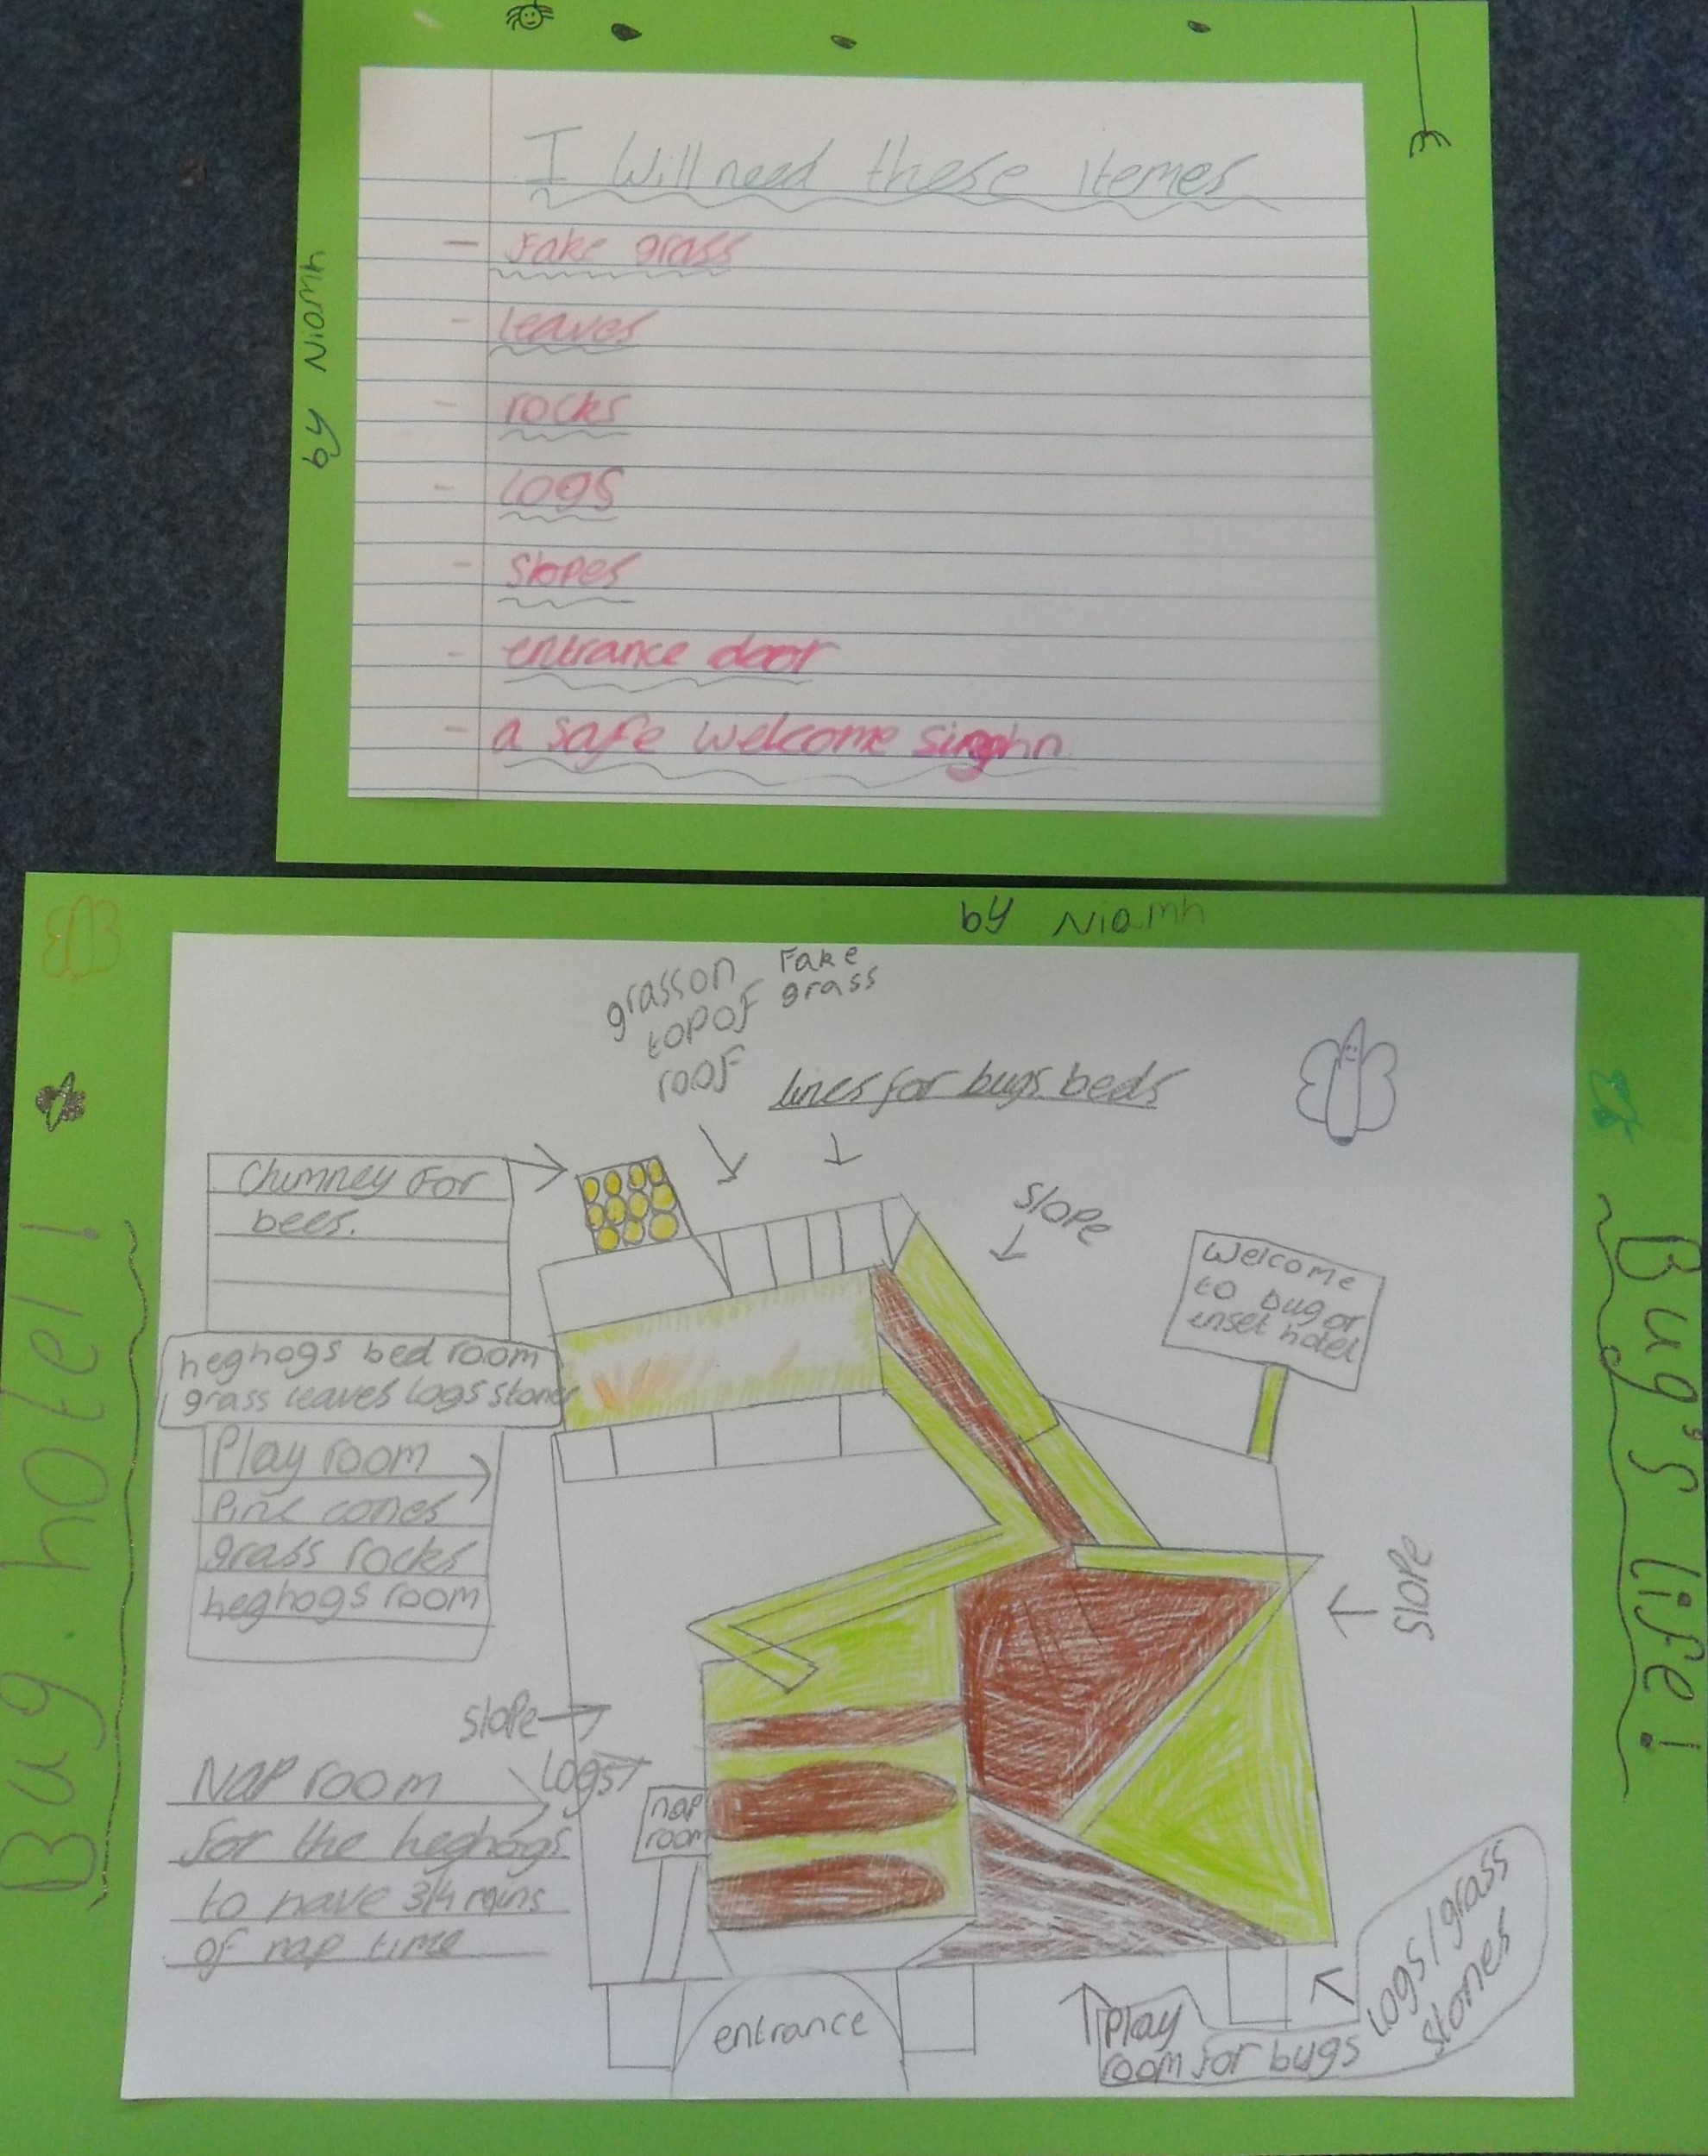 I Will need these itemes
by Niamh
- Fake grass
- leaves
- rocks
- logs
- slopes
- entrance door
- a safe welcome singhn
by Niamh
Bug hotel!
Bug's life!
grass on
top of
roof
Fake
grass
lines for bugs beds
Chimney For
bees.
slope
Welcome
to bug or
inset hotel
heghogs bed room
grass leaves logs stones
Play room
Pine cones
grass rocks
heghogs room
slope
slope
logs
Nap room
for the heghogs
to have 3/4 mins
of nap time
nap
room
entrance
Play
room for bugs
logs/grass
stones